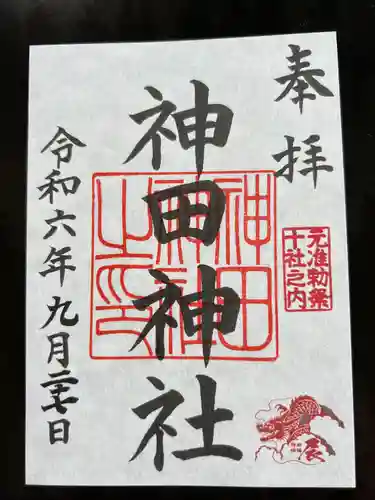 奉拝
元准勅祭
十社之内
辰
神田神社
神田
神社
之印
令和六年九月二十七日